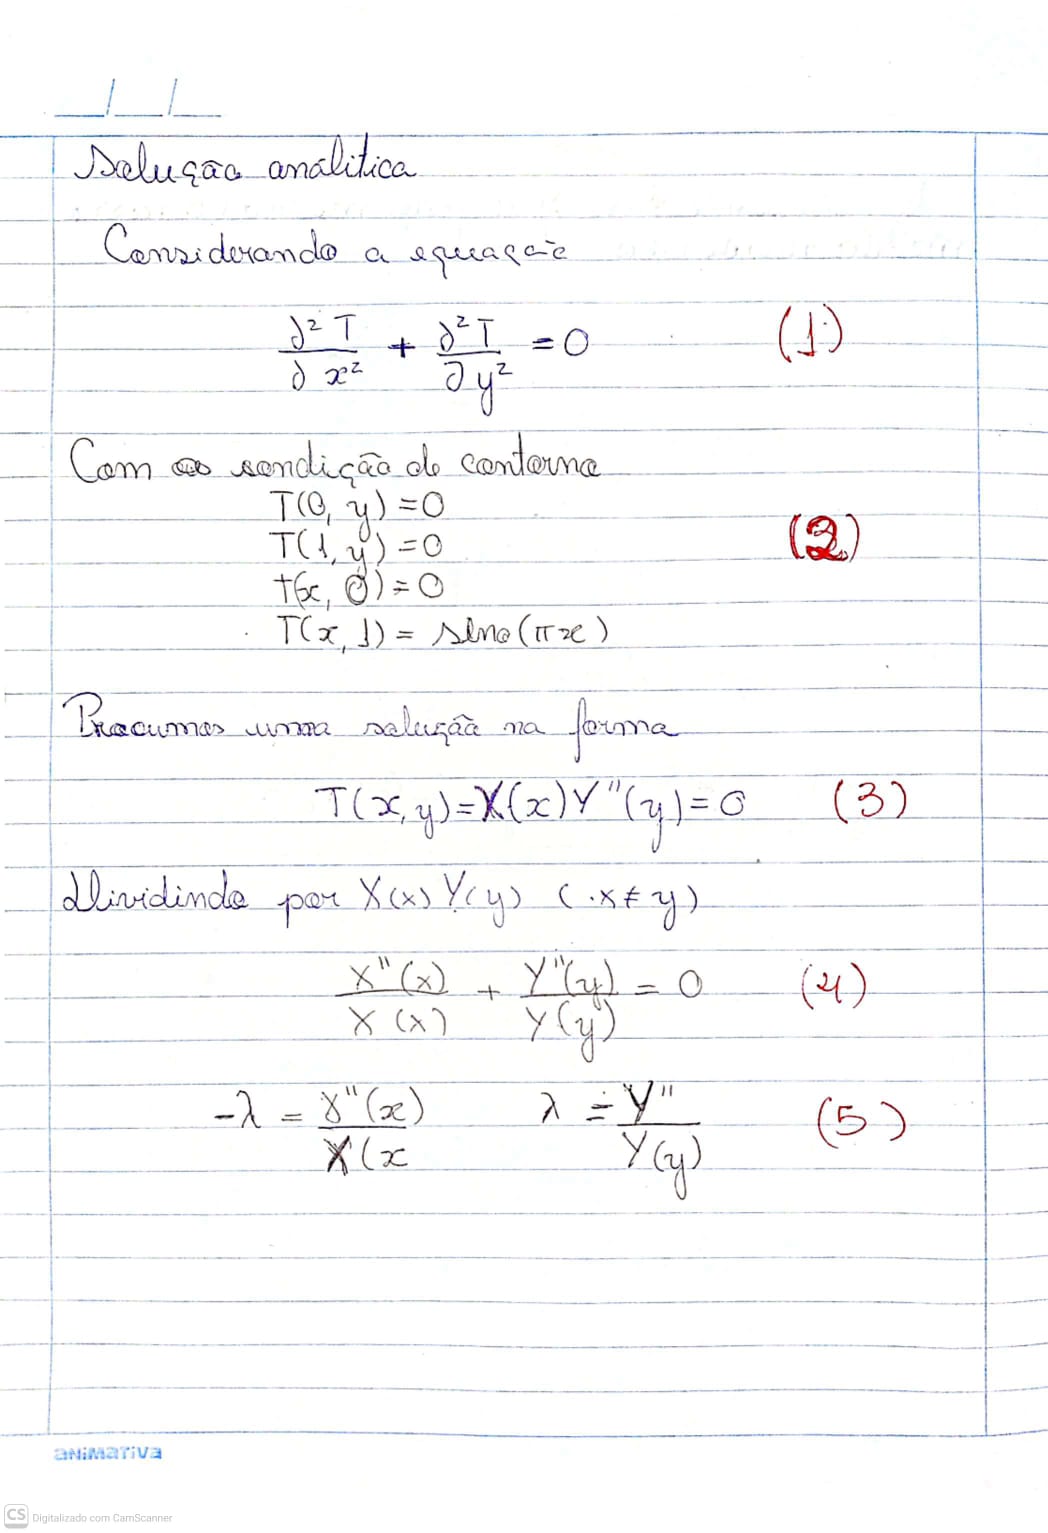 Solução análitica
Considerando a equação
∂²T/∂x² + ∂²T/∂y² = 0 (1)
Com as condição de contorno
T(0, y) = 0
T(1, y) = 0
T(x, 0) = 0 (2)
T(x, 1) = seno(πx)
Procumos uma solução na forma
T(x, y) = X(x)Y"(y) = 0 (3)
Dividindo por X(x) Y(y) (x ≠ y)
X"(x)/X(x) + Y"(y)/Y(y) = 0 (4)
-λ = X"(x)/X(x λ = Y"/Y(y) (5)
animativa
CS Digitalizado com CamScanner